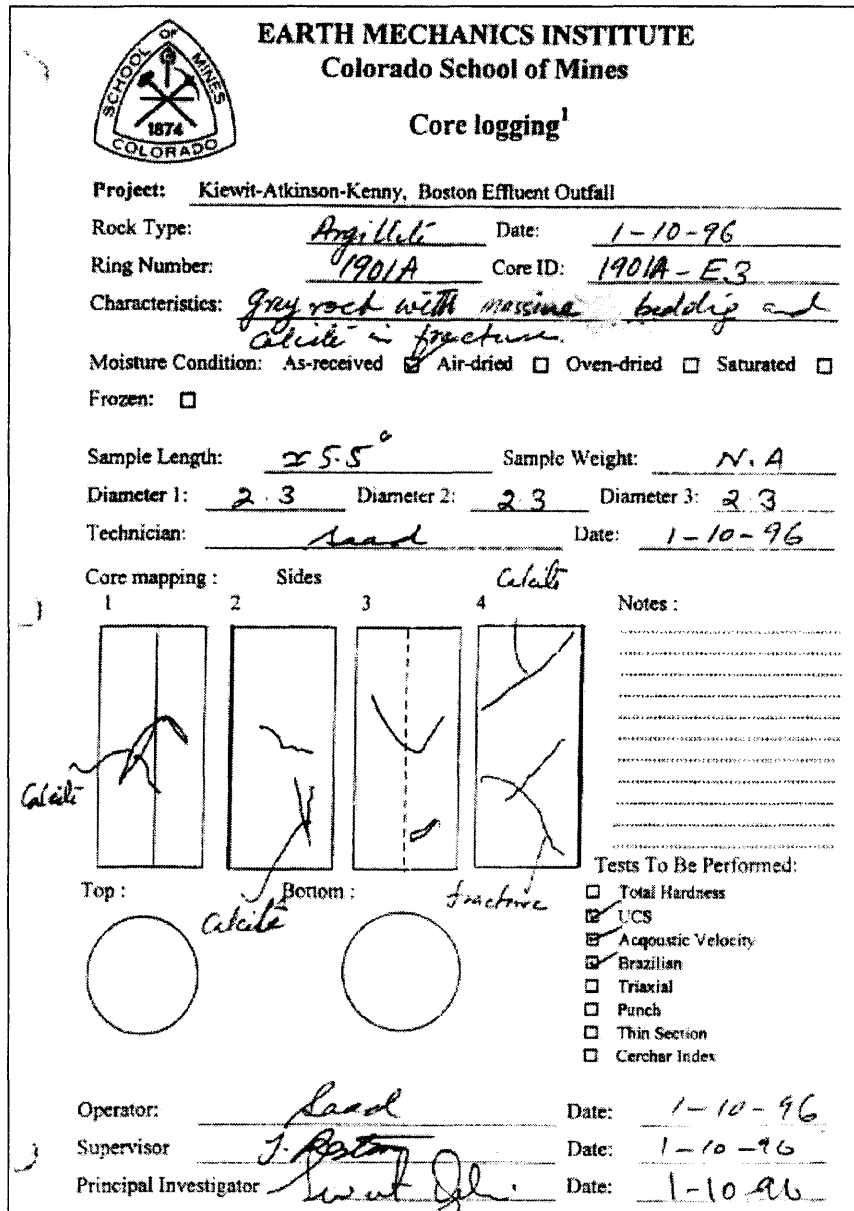 EARTH MECHANICS INSTITUTE
Colorado School of Mines
SCHOOL OF MINES
1874
COLORADO
Core logging1
Project: Kiewit-Atkinson-Kenny, Boston Effluent Outfall
Rock Type: Argillite Date: 1-10-96
Ring Number: 1901A Core ID: 1901A-E3
Characteristics: Gray rock with massive bedding and
Calcite in fractures.
Moisture Condition: As-received ☑ Air-dried ☐ Oven-dried ☐ Saturated ☐
Frozen: ☐
Sample Length: ≈ 5.5" Sample Weight: N.A
Diameter 1: 2.3 Diameter 2: 2.3 Diameter 3: 2.3
Technician: Saad Date: 1-10-96
Core mapping : Sides Calcite
1 2 3 4 Notes :
Calcite
Tests To Be Performed:
Top : Bottom : fracture
Calcite
☐ Total Hardness
☑ UCS
☑ Acqoustic Velocity
☑ Brazilian
☐ Triaxial
☐ Punch
☐ Thin Section
☐ Cerchar Index
Operator: Saad Date: 1-10-96
Supervisor Date: 1-10-96
Principal Investigator Date: 1-10-96